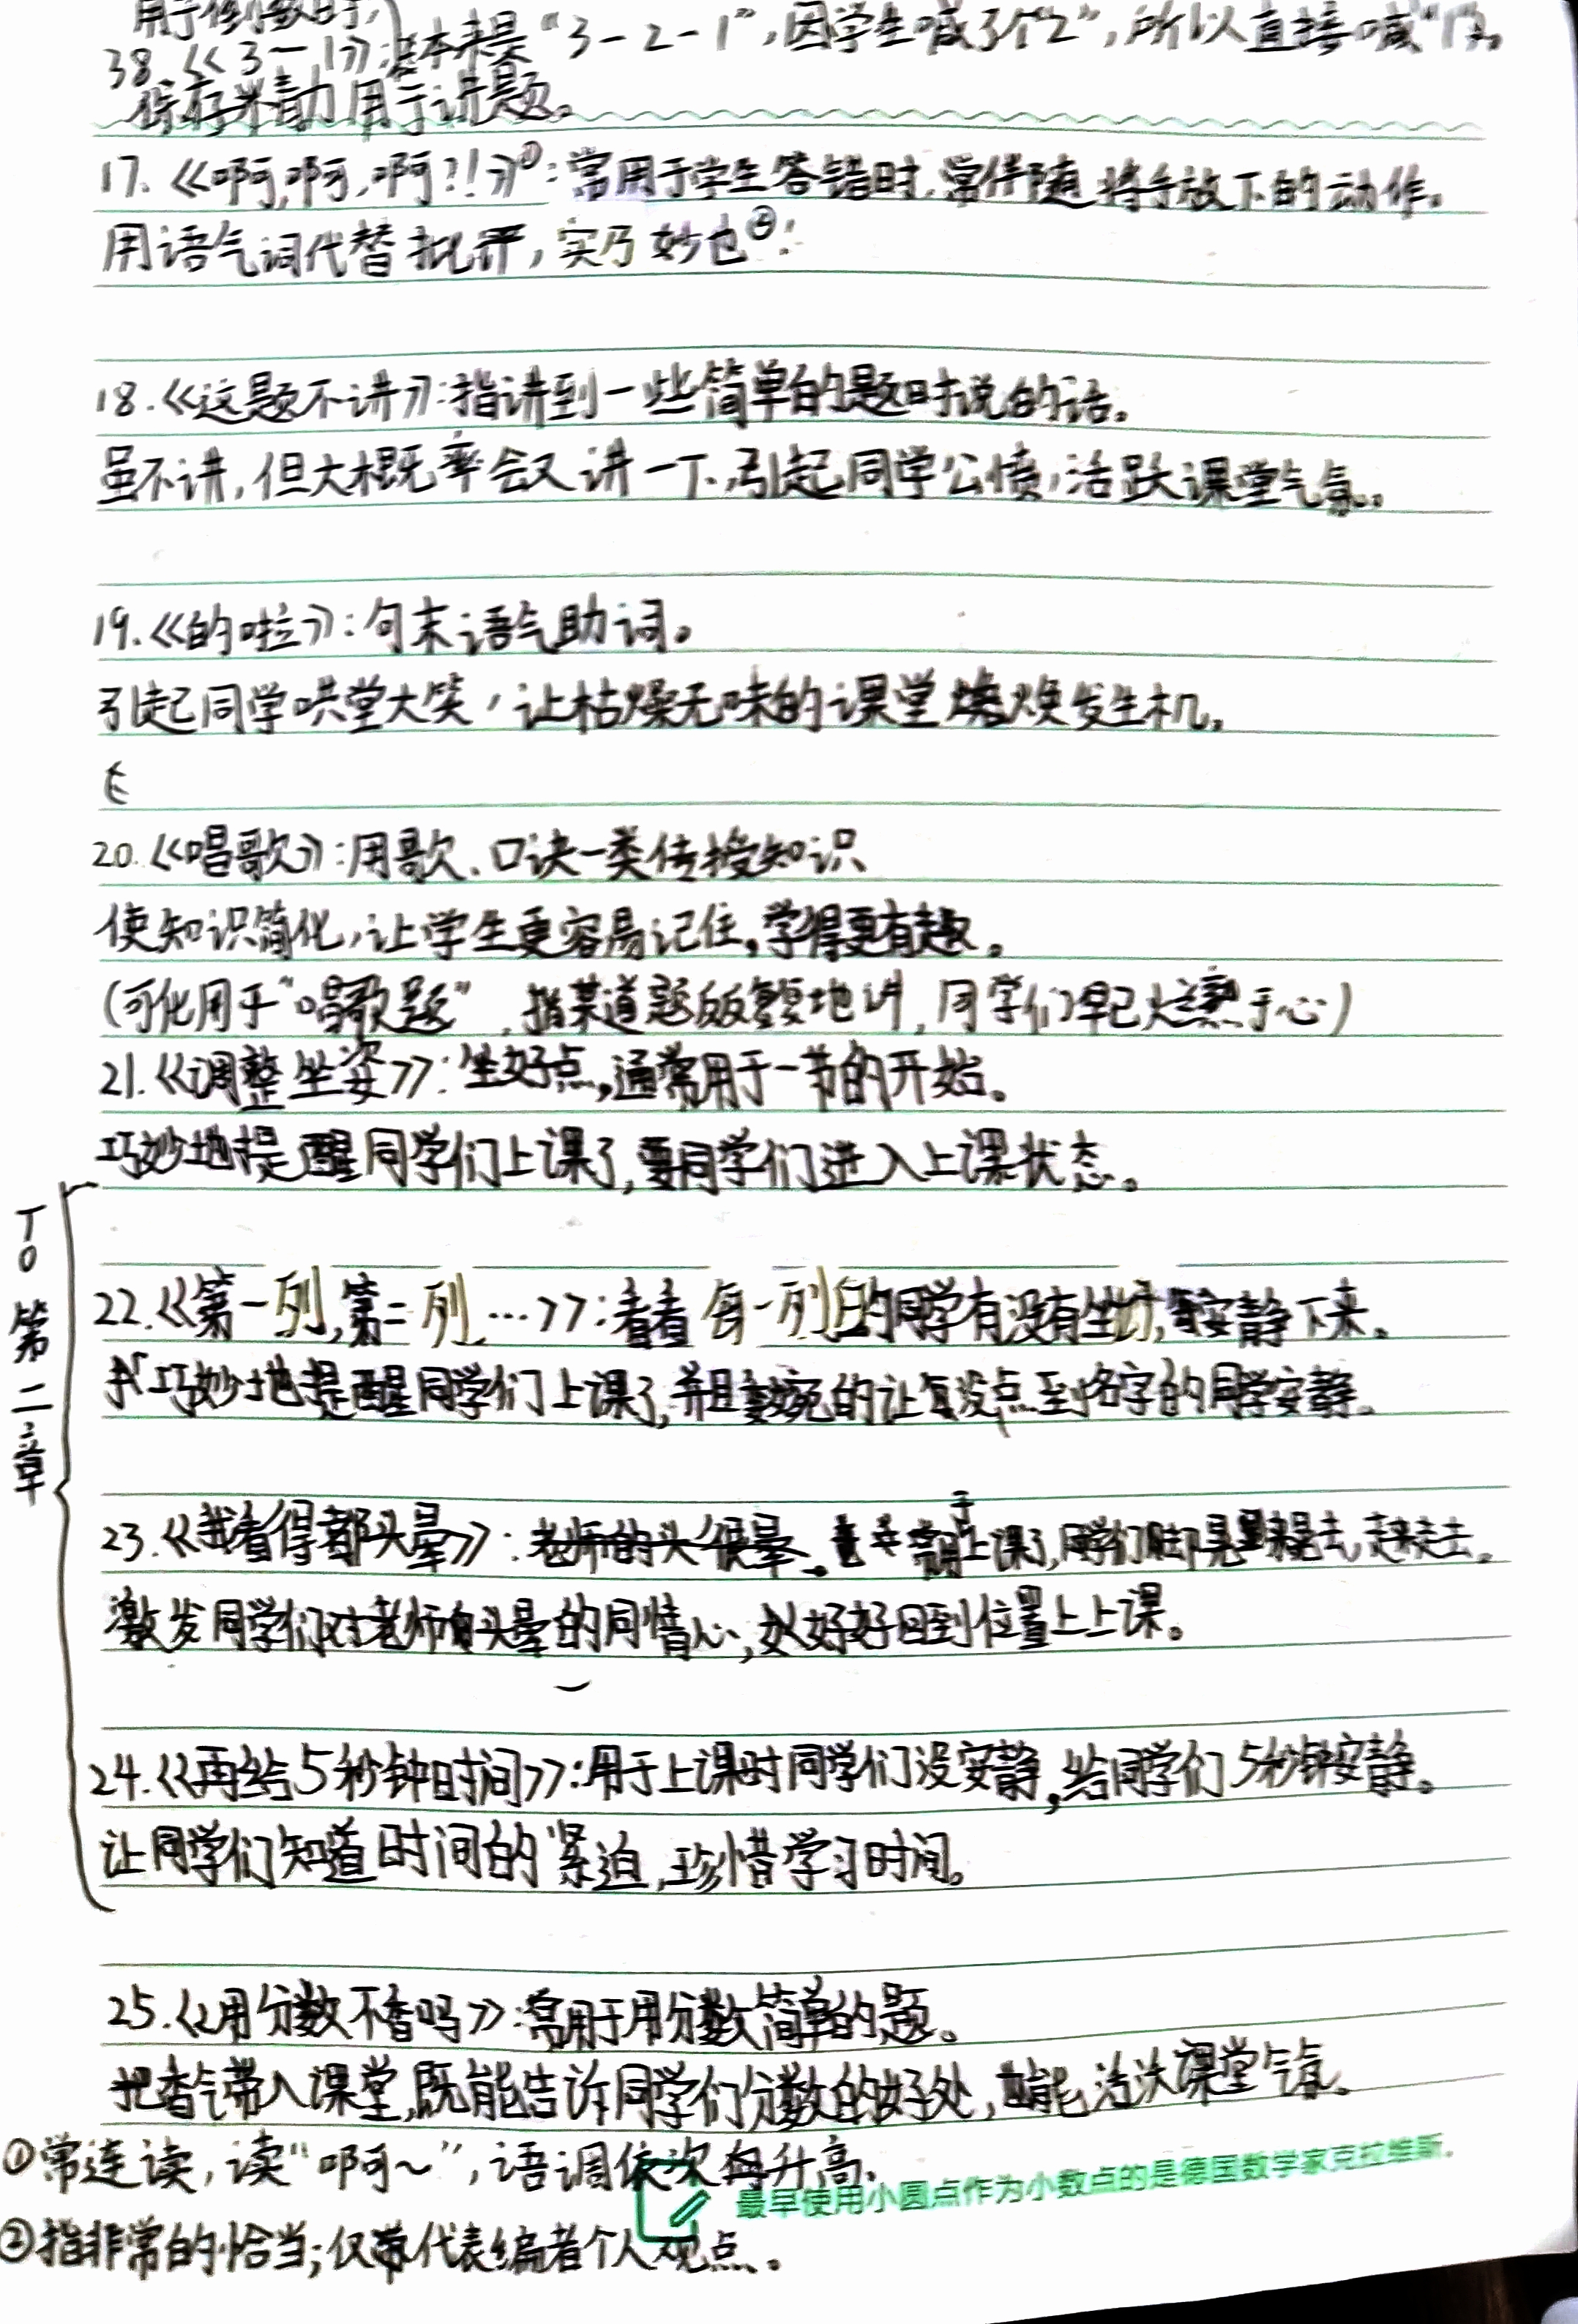 用于倒数时,
38.《3—1》:基本来是“3-2-1”,因学生喊了个“2”,所以直接喊“1”,
保存精力用于讲题。
17.《啊,啊,啊?!》①:常用于学生答错时,常伴随将手放下的动作。
用语气词代替批评,实乃妙也②!
18.《这题不讲》:指讲到一些简单的题时说的话。
虽不讲,但大概率会又讲一下,引起同学公愤,活跃课堂气氛。
19.《的啦》:句末语气助词。
引起同学哄堂大笑,让枯燥无味的课堂焕发生机。
20.《唱歌》:用歌、口诀一类传授知识
使知识简化,让学生更容易记住,学得更有趣。
(可化用于“唱歌题”,指某道题反复地讲,同学们早已火熟于心)
21.《调整坐姿》:坐好点,通常用于一节的开始。
巧妙地提醒同学们上课了,要同学们进入上课状态。
TO 第二章
22.《第一列,第二列…》:看看每一列的同学有没有坐好,安静下来。
巧妙地提醒同学们上课了,并且委婉的让没点到名字的同学安静。
23.《我看得都头晕》:老师的头很晕。上课了,同学们晃来晃去,走来走去。
激发同学们对老师头晕的同情心,好好回到位置上上课。
24.《再给5秒钟时间》:用于上课时同学们没安静,给同学们5秒钟安静。
让同学们知道时间的紧迫,珍惜学习时间。
25.《用分数不香吗》:常用于用分数简单的题。
把香气带入课堂,既能告诉同学们分数的好处,也能活沃课堂气氛。
①常连读,读“啊~”,语调依次升高.
最早使用小圆点作为小数点的是德国数学家克拉维斯.
②指非常的恰当;仅代表编者个人观点。